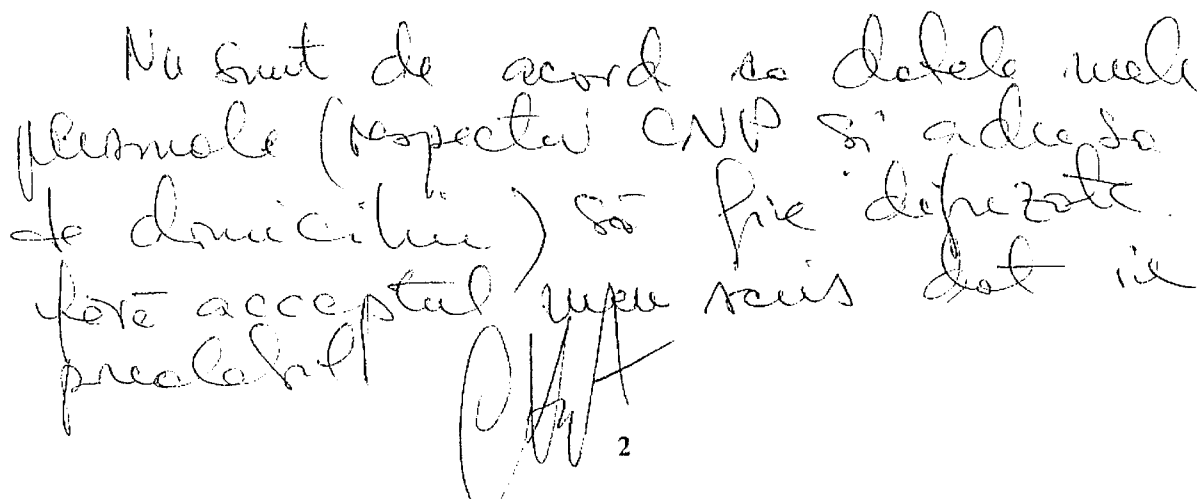 Nu sunt de acord ca datele mele
personale (respectiv CNP si adresa
de domiciliu) să fie difuzate
fără acceptul meu scris dat in
prealabil
2